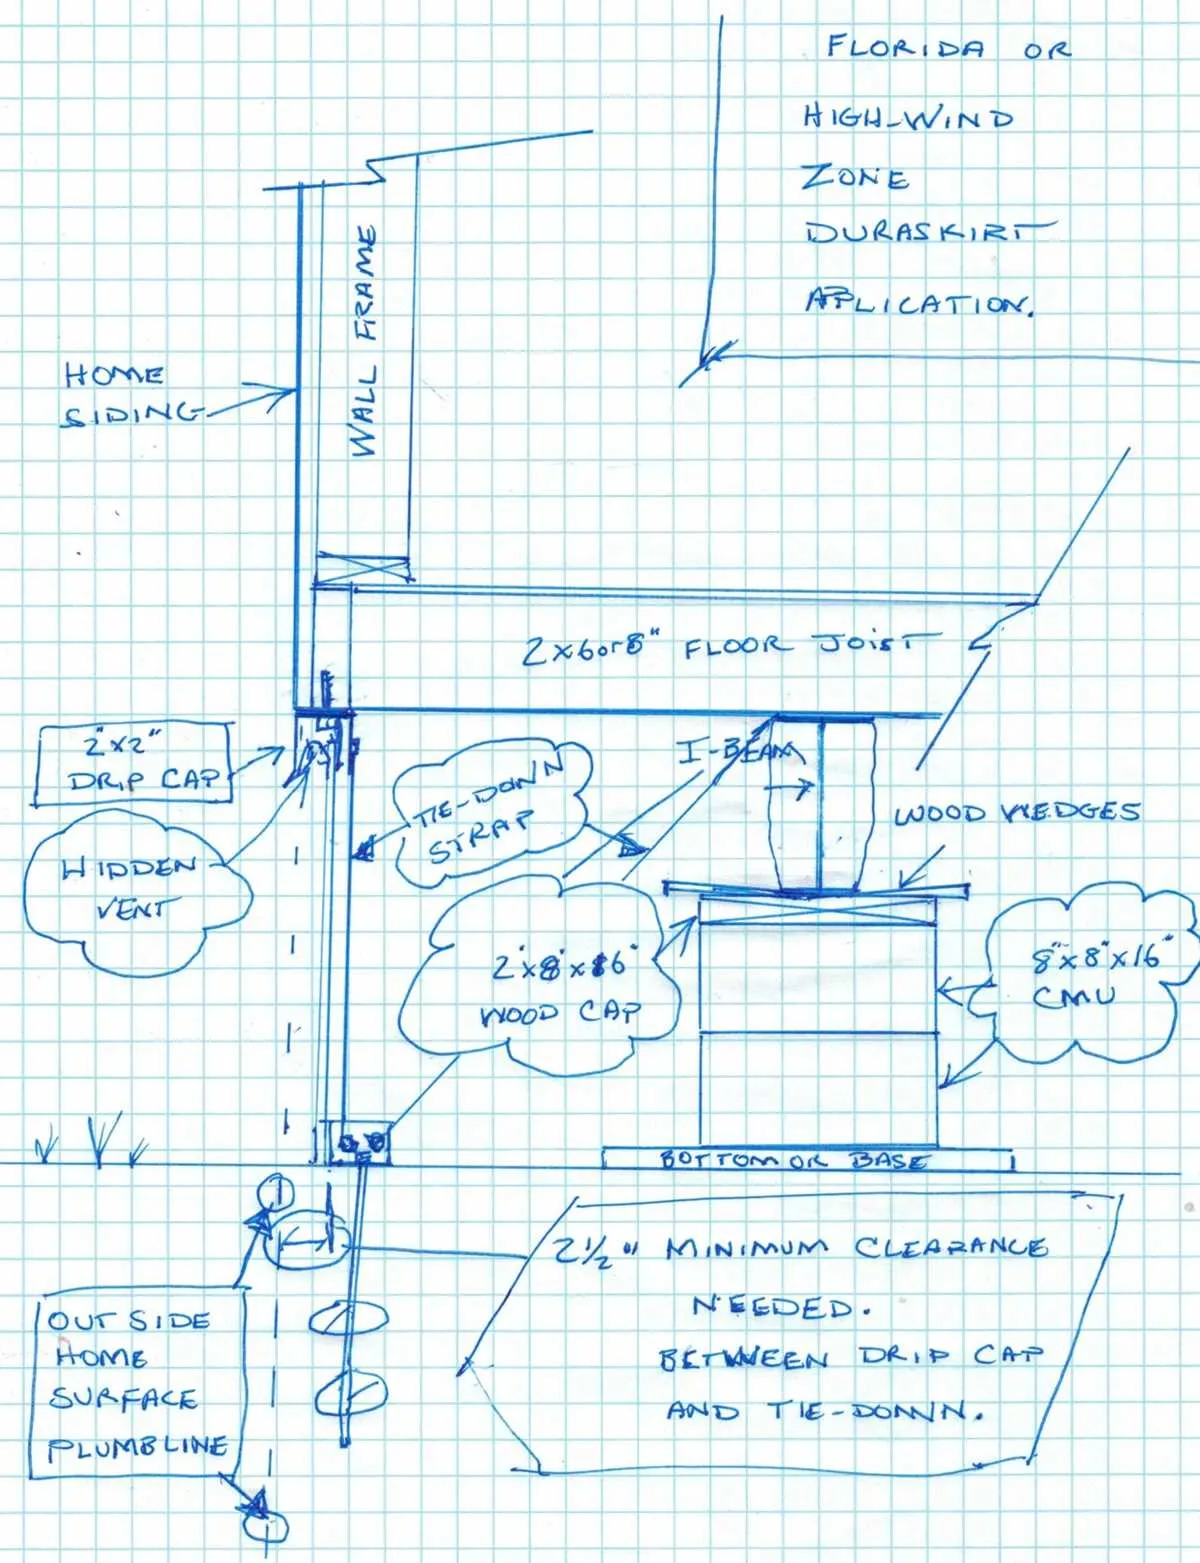 FLORIDA OR
HIGH-WIND
ZONE
DURASKIRT
APPLICATION.
WALL FRAME
HOME
SIDING
2x6or8" FLOOR JOIST
2"x2"
DRIP CAP
TIE-DOWN
STRAP
I-BEAM
WOOD WEDGES
HIDDEN
VENT
2"x8"x16"
WOOD CAP
8"x8"x16"
CMU
BOTTOM OR BASE
2½" MINIMUM CLEARANCE
NEEDED.
BETWEEN DRIP CAP
AND TIE-DOWN.
OUTSIDE
HOME
SURFACE
PLUMBLINE